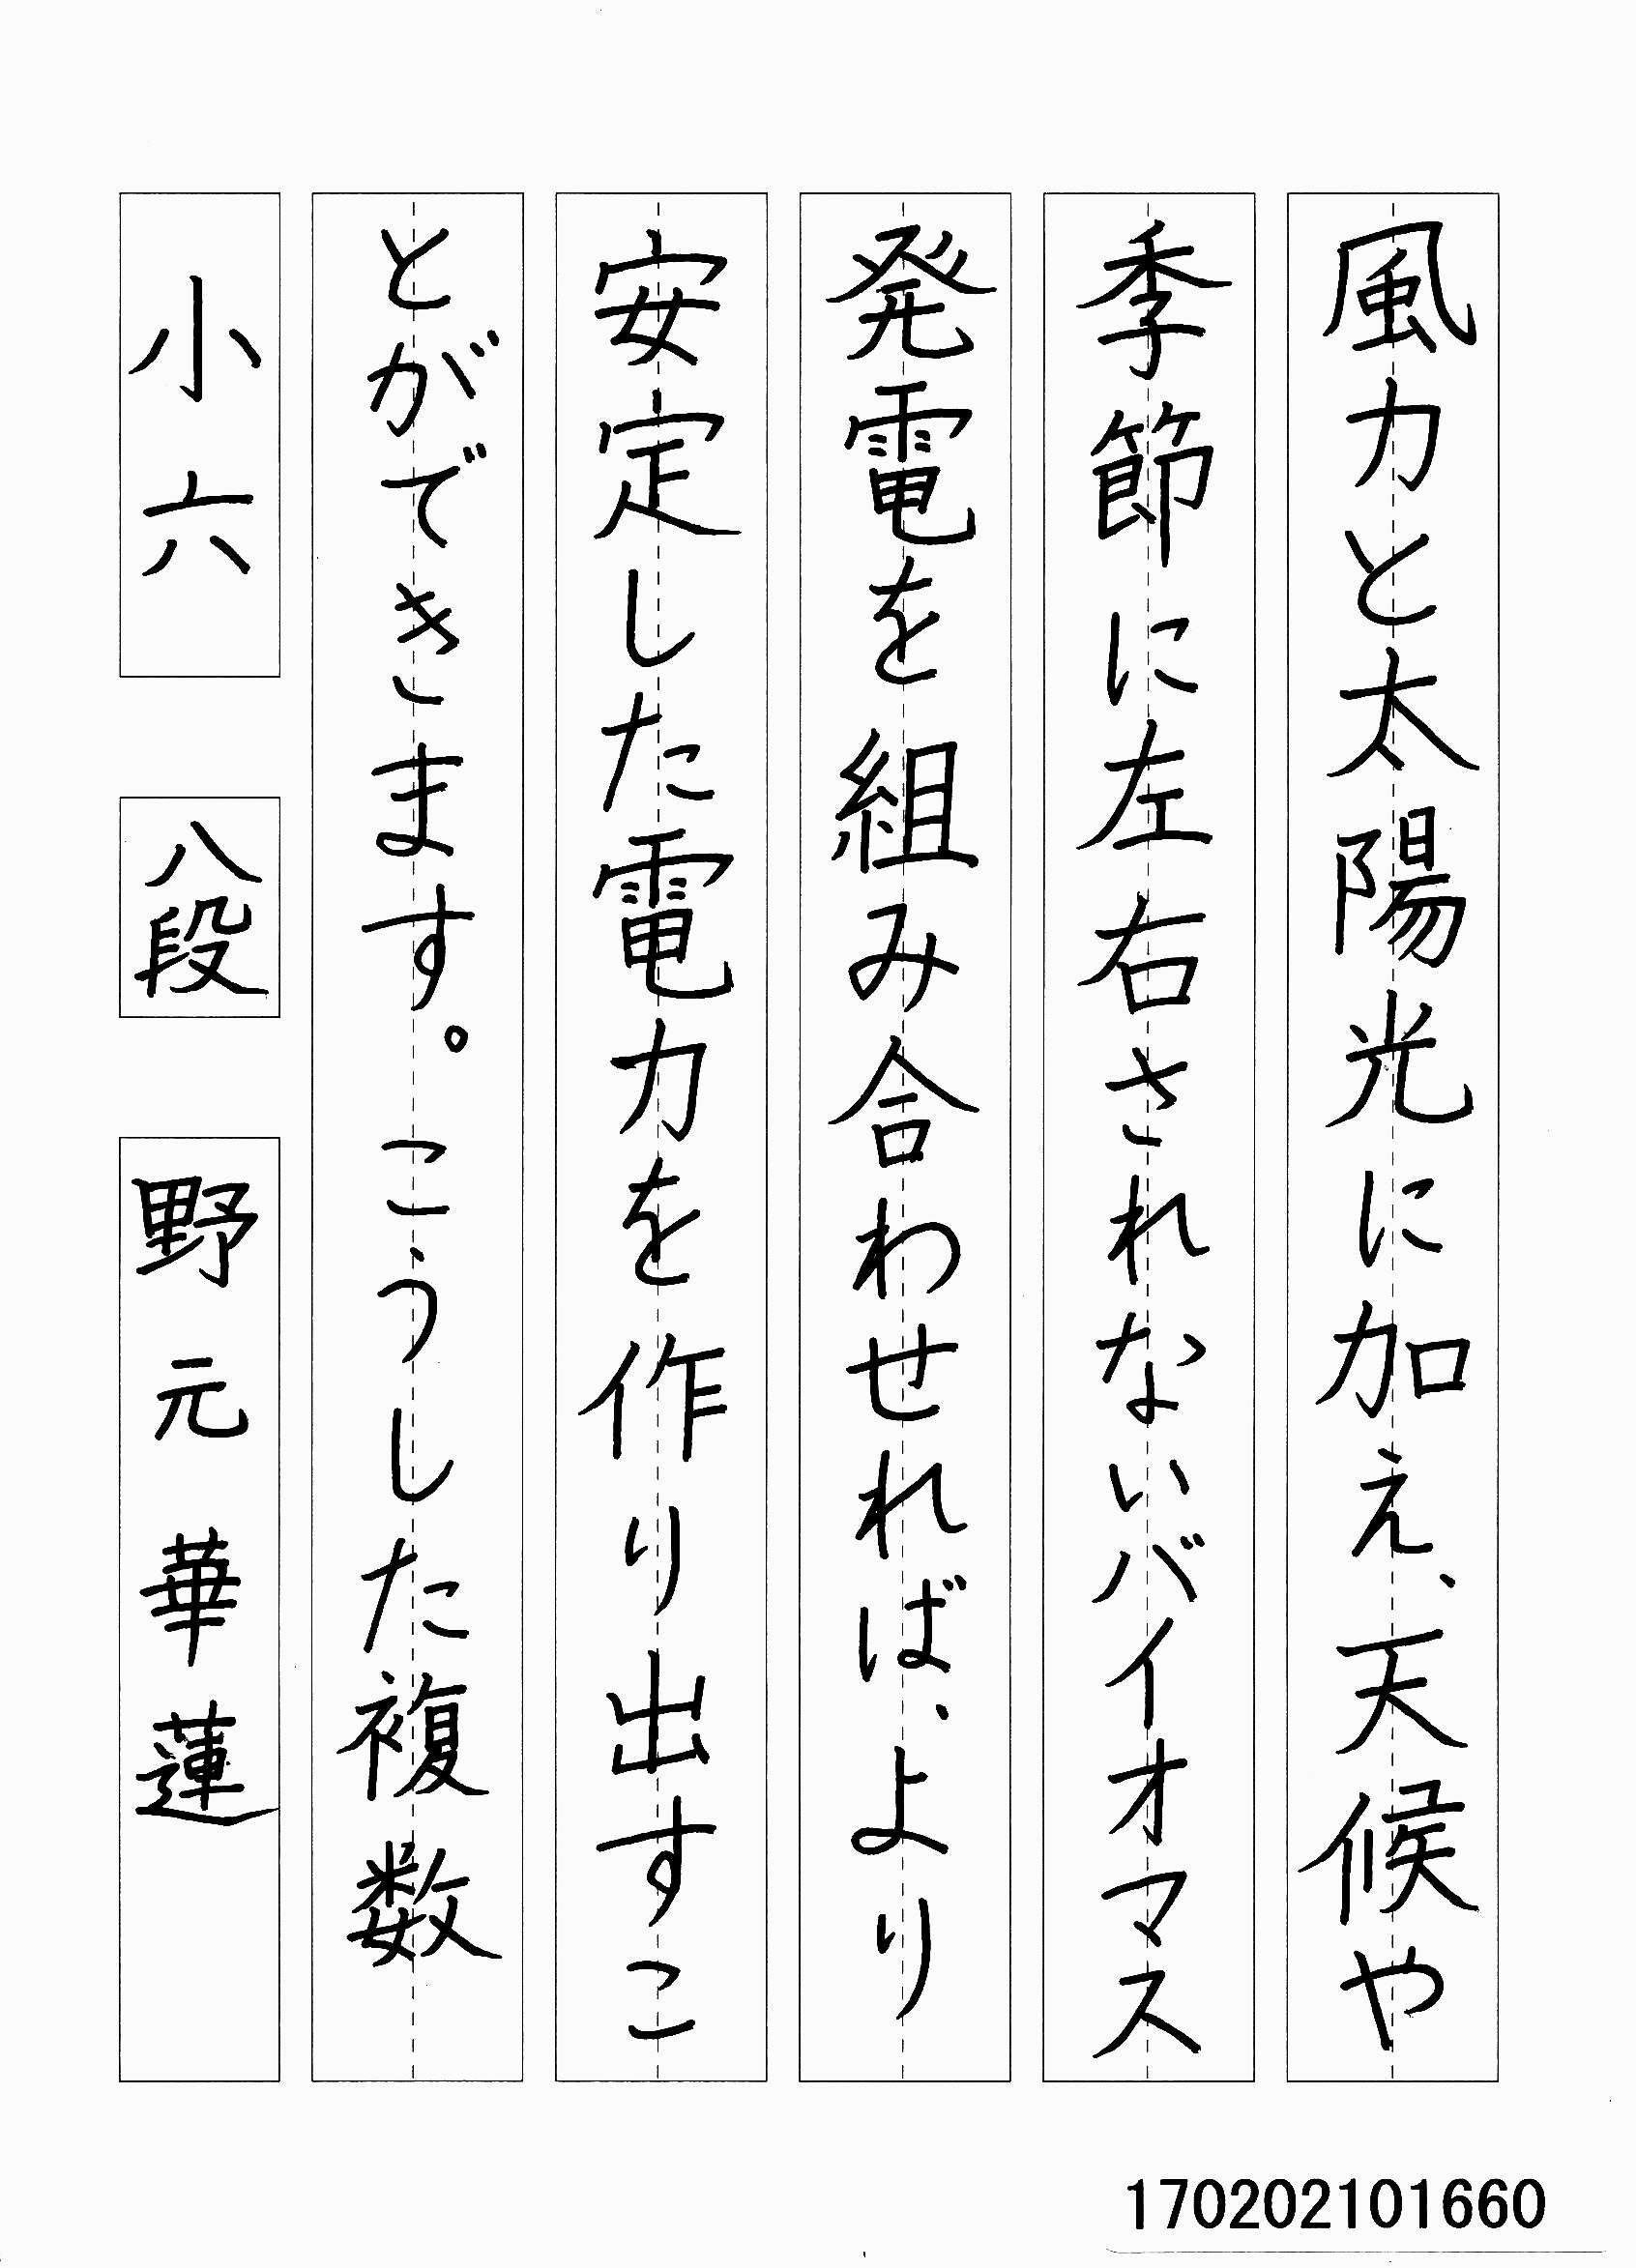 風力と太陽光に加え、天候や
季節に左右されないバイオマス
発電を組み合わせれば、より
安定した電力を作り出すこ
とができます。こうした複数
小六
八段
野元華蓮
170202101660